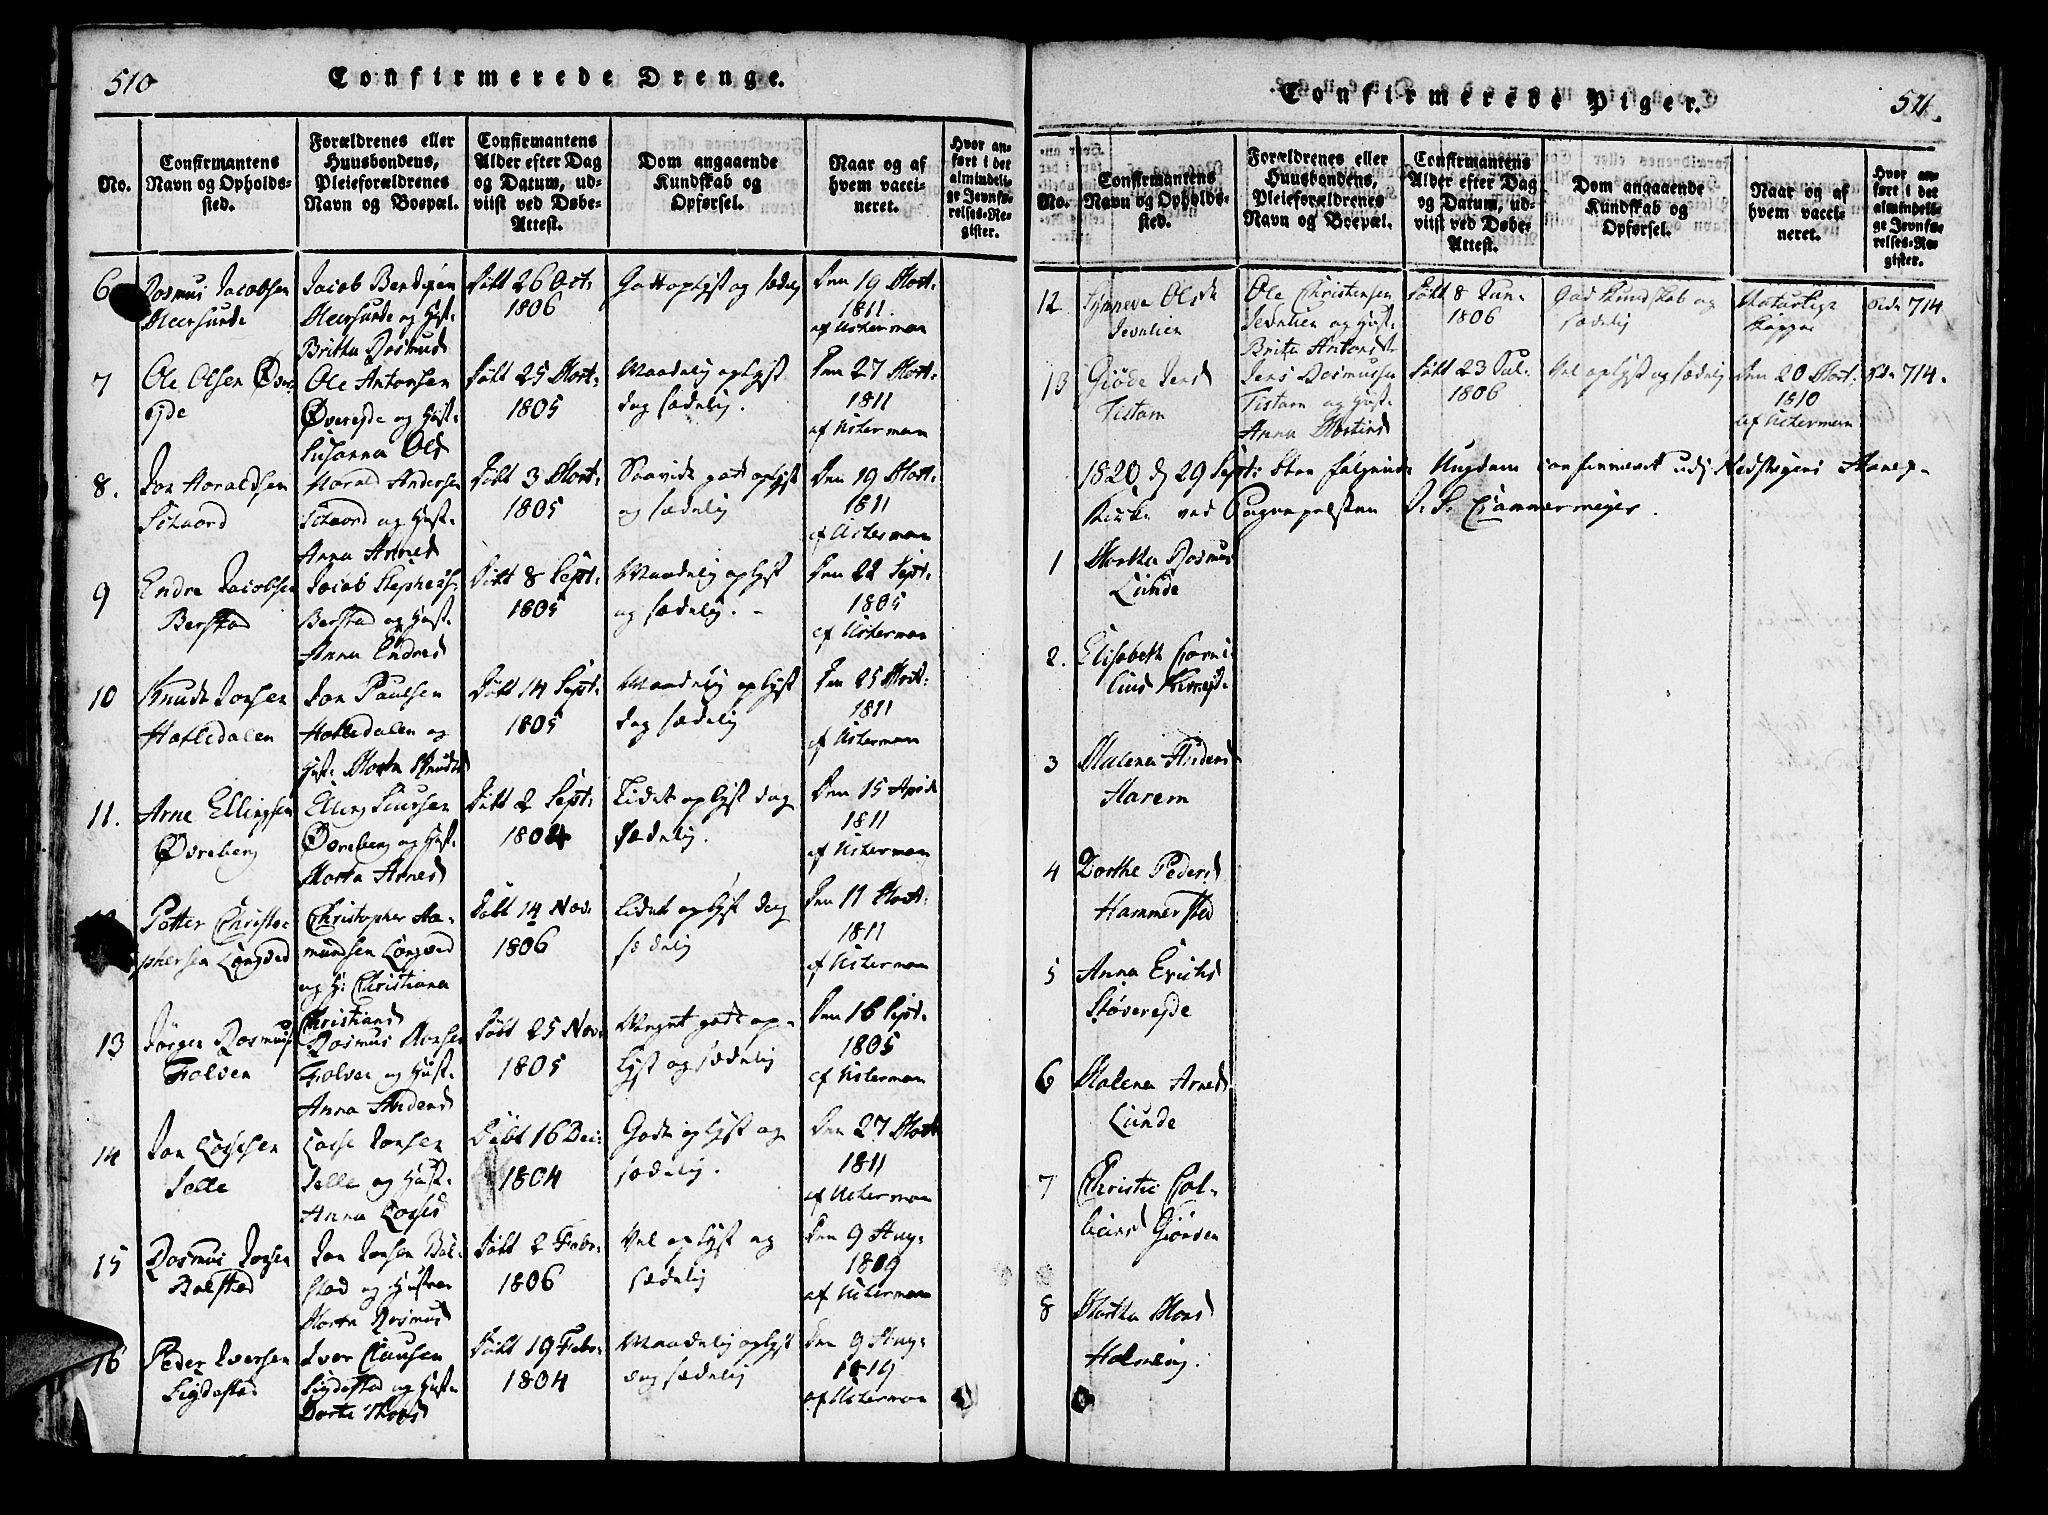 510
Confirmerede Drenge.
No.
Confirmantens
Navn og Opholds-
sted.
Forældrenes eller
Huusbondens,
Pleieforældrenes
Navn og Boepæl.
Confirmantens
Alder efter Dag
og Datum, ud-
viist ved Døbe-
Attest.
Dom angaaende
Kundskab og
Opførsel.
Naar og af
hvem vacci-
neret.
Hvor an-
ført i det
almindeli-
ge Jevnfø-
relses-Re-
gister.
6
Rasmus Jacobsen
Jacob
og Hust:
Britha Rasmusd
Døbt 26 Oct:
1806
Godt oplyst og sædelig
Den 19 Mart:
1811.
af Asterman
7
Ole Olsen Øvre
ejde
Ole Antonsen
Øvreejde og Hust:
Susanna Olsd
Døbt 25 Mart:
1805
Maadelig oplyst
dog sædelig.
Den 27 Mart:
1811
af Asterman
8.
Jon Haraldsen
Harald Andersen
og Hust:
Anna Arnesd
Døbt 3 Mart:
1805
Saavidt godt oplyst
og sædelig
Den 19 Mart:
1811
af Asterman
9
Endre Jacobsen
Berstad
Jacob Stephens:
Berstad og Hust:
Anna Endresd
Døbt 8 Sept:
1805
Maadelig oplyst
og sædelig. -
Den 22 Sept:
1805
af Asterman
10
Knudt Jonsen
Hatledalen
Jon Paulsen
Hatledalen og
Hust: Marta Knudsd
Døbt 14 Sept:
1805
Maadelig oplyst
dog sædelig
Den 25 Mart:
1811
af Asterman
11.
Arne Ellingsen
Øvreberg
Elling Siursen
Øvreberg og Hust:
Marta Arnesd
Døbt 2 Sept:
1804
Lidet oplyst dog
sædelig.
Den 15 April
1811
af Asterman
Petter Christo-
phersen
Christopher Aa-
mundsen
og H: Christiana
Christiansd
Døbt 14 Nov:
1806
Lidet oplyst dog
sædelig
Den 11 Mart:
1811
af Asterman
13
Jørgen Rasmus
Folven
Rasmus
Folven og Hust:
Anna Andersd
Døbt 25 Nov:
1805
Meget godt op-
lyst og sædelig
Den 16 Sept:
1805
af Asterman
14
Jon Lassesen
Selle
Lasse Jonsen
Selle og Hust:
Anna Lassesd
Døbt 16 Dec:
1804
Godt oplyst og
sædelig.
Den 27 Mart
1811
af Asterman
15
Rasmus Jonsen
Balstad
Jon Jonsen Bal-
stad og Hustrue
Marta Rasmusd
Døbt 2 Febr:
1806
Vel oplyst og
sædelig
Den 9 Aug:
1809
af Asterman
16
Peder Iversen
Sigdestad
Iver Clausen
Sigdestad og Hust:
Dorte
Døbt 19 Febr:
1804
Maadelig oplyst
og sædelig
Den 9 Aug:
1819
af Asterman
Confirmerede Piger.
511.
No.
Confirmantens
Navn og Opholds-
sted.
Forældrenes eller
Huusbondens,
Pleieforældrenes
Navn og Boepæl.
Confirmantens
Alder efter Dag
og Datum, ud-
viist ved Døbe-
Attest.
Dom angaaende
Kundskab og
Opførsel.
Naar og af
hvem vacci-
neret.
Hvor an-
ført i det
almindeli-
ge Jevnfø-
relses-Re-
gister.
12
Synneve Olsd
Ole Christensen
og Hust:
Brita Antonsd
Døbt 8 Jun:
1806
God Kundskab og
sædelig
Naturlige
Kopper
Side 714
13
Giøde Jensd
Tistam
Jens Rasmussen
Tistam og Hust:
Anna Mortensd
Døbt 23 Jul:
1806
Vel oplyst og sædelig
Den 20 Mart:
1810
af Asterman
Side 714.
1820 d 29 Sept: blev følgende Ungdom confirmeret udj Nedstrÿns Hoved-
Kirke ved Sognepræsten J. S. Cammermeyer.
1
Martha Rasmus
Lunde
2.
Elisabeth Corni-
3
Malena Andersd
Aarem
4
Dorthe Pedersd
Hammersted
5
Anna Erichsd
Støverejde
6
Malena Arnesd
Lunde
7
Christi Col-
8
Martha Monsd